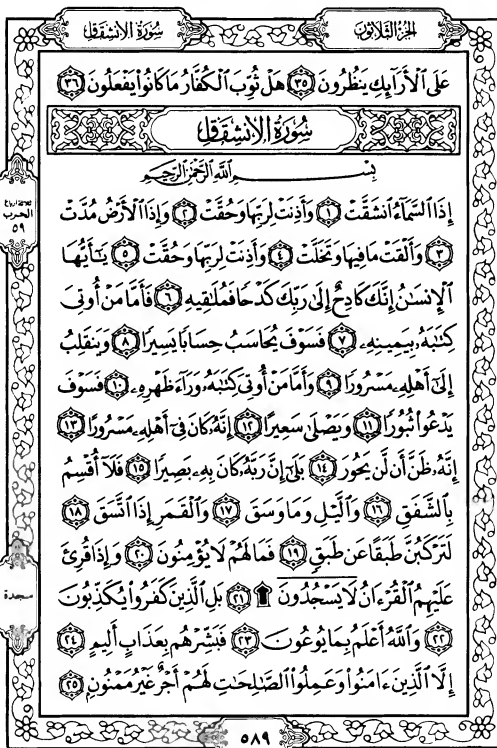 سُورَةُ الانشِقَاقِ
الجُزءُ الثَّلَاثُونَ
عَلَى ٱلْأَرَآئِكِ يَنظُرُونَ ٣٥ هَلْ ثُوِّبَ ٱلْكُفَّارُ مَا كَانُوا۟ يَفْعَلُونَ ٣٦
سُورَةُ الانشِقَاقِ
بِسْمِ ٱللَّهِ ٱلرَّحْمَٰنِ ٱلرَّحِيمِ
إِذَا ٱلسَّمَآءُ ٱنشَقَّتْ ١ وَأَذِنَتْ لِرَبِّهَا وَحُقَّتْ ٢ وَإِذَا ٱلْأَرْضُ مُدَّتْ
٣ وَأَلْقَتْ مَا فِيهَا وَتَخَلَّتْ ٤ وَأَذِنَتْ لِرَبِّهَا وَحُقَّتْ ٥ يَٰٓأَيُّهَا
ٱلْإِنسَٰنُ إِنَّكَ كَادِحٌ إِلَىٰ رَبِّكَ كَدْحًا فَمُلَٰقِيهِ ٦ فَأَمَّا مَنْ أُوتِىَ
كِتَٰبَهُۥ بِيَمِينِهِۦ ٧ فَسَوْفَ يُحَاسَبُ حِسَابًا يَسِيرًا ٨ وَيَنقَلِبُ
إِلَىٰٓ أَهْلِهِۦ مَسْرُورًا ٩ وَأَمَّا مَنْ أُوتِىَ كِتَٰبَهُۥ وَرَآءَ ظَهْرِهِۦ ١٠ فَسَوْفَ
يَدْعُوا۟ ثُبُورًا ١١ وَيَصْلَىٰ سَعِيرًا ١٢ إِنَّهُۥ كَانَ فِىٓ أَهْلِهِۦ مَسْرُورًا ١٣
إِنَّهُۥ ظَنَّ أَن لَّن يَحُورَ ١٤ بَلَىٰٓ إِنَّ رَبَّهُۥ كَانَ بِهِۦ بَصِيرًا ١٥ فَلَآ أُقْسِمُ
بِٱلشَّفَقِ ١٦ وَٱلَّيْلِ وَمَا وَسَقَ ١٧ وَٱلْقَمَرِ إِذَا ٱتَّسَقَ ١٨
لَتَرْكَبُنَّ طَبَقًا عَن طَبَقٍ ١٩ فَمَا لَهُمْ لَا يُؤْمِنُونَ ٢٠ وَإِذَا قُرِئَ
عَلَيْهِمُ ٱلْقُرْءَانُ لَا يَسْجُدُونَ ۩ ٢١ بَلِ ٱلَّذِينَ كَفَرُوا۟ يُكَذِّبُونَ
٢٢ وَٱللَّهُ أَعْلَمُ بِمَا يُوعُونَ ٢٣ فَبَشِّرْهُم بِعَذَابٍ أَلِيمٍ ٢٤
إِلَّا ٱلَّذِينَ ءَامَنُوا۟ وَعَمِلُوا۟ ٱلصَّٰلِحَٰتِ لَهُمْ أَجْرٌ غَيْرُ مَمْنُونٍۭ ٢٥
ثلاثة ارباع
الحزب
٥٩
سجدة
٥٨٩